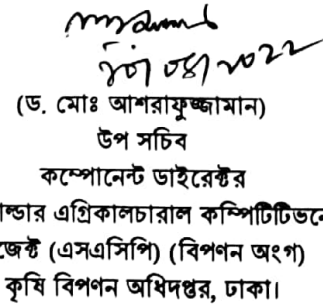 (ড. মোঃ আশরাফুজ্জামান)
উপ সচিব
কম্পোনেন্ট ডাইরেক্টর
ল্ডার এগ্রিকালচারাল কম্পিটিটিভনে
জেক্ট (এসএসিপি) (বিপণন অংগ)
কৃষি বিপণন অধিদপ্তর, ঢাকা।